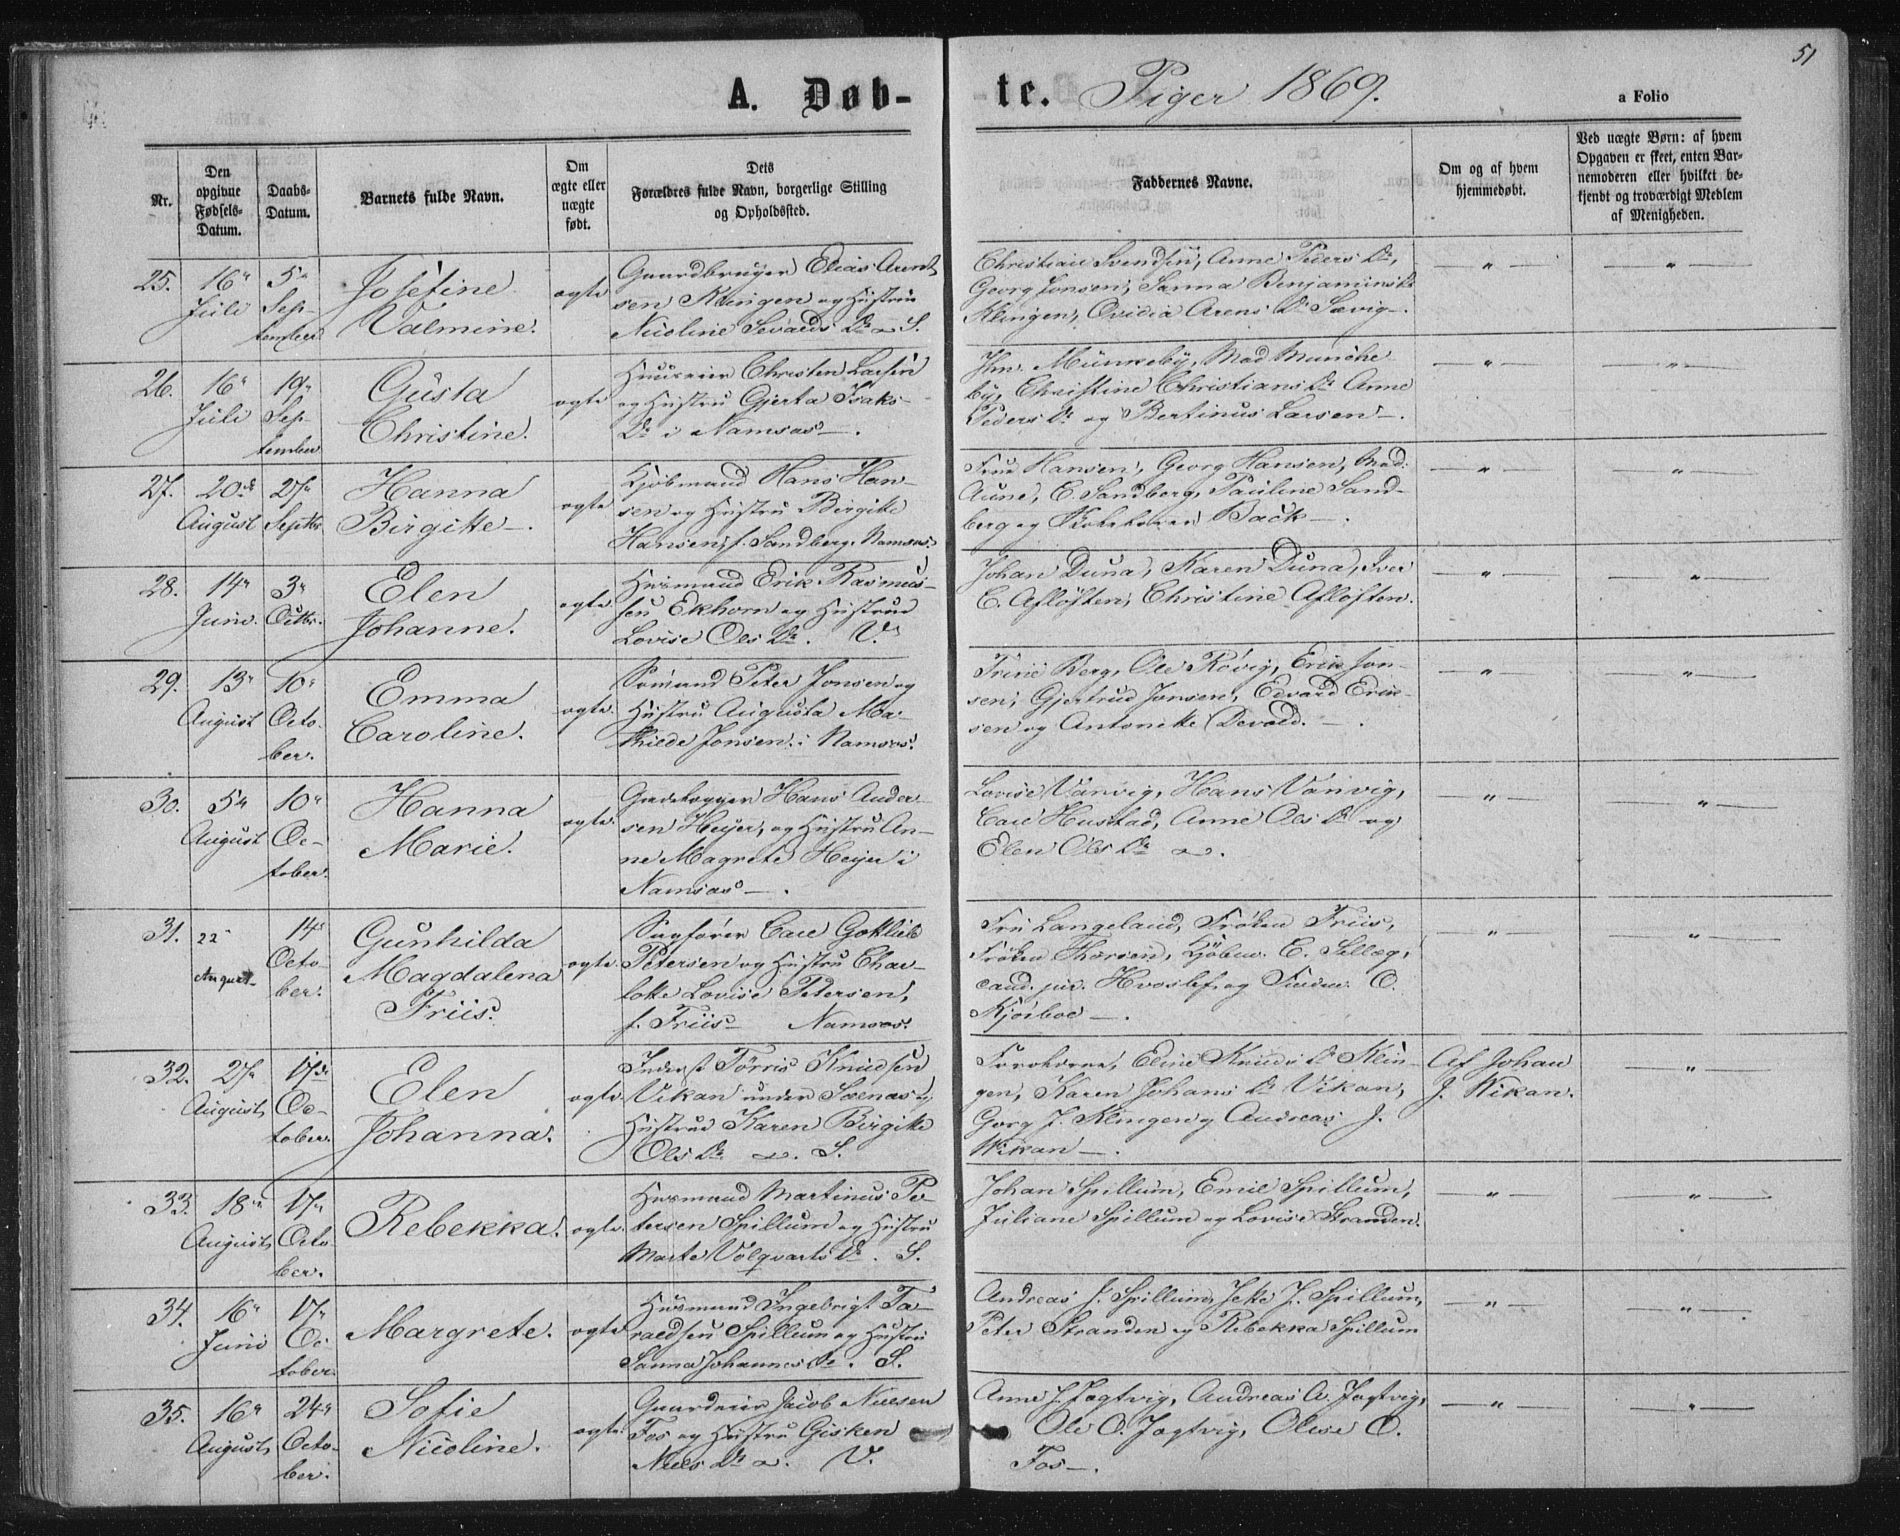 51
A. Døb-te. Piger 1869.
a Folio
Nr.
Den opgivne Fødsels-Datum.
Daabs-Datum.
Barnets fulde Navn.
Om ægte eller uægte født.
Dets Forældres fulde Navn, borgerlige Stilling og Opholdssted.
Faddernes Navne.
Om og af hvem hjemmedøbt.
Ved uægte Børn: af hvem Opgaven er skeet, enten Barnemoderen eller hvilket bekjendt og troværdigt Medlem af Menigheden.
25. 16 Juli
5 September
Josefine
Valmine.
ægte
Gaardbruger Elias Arent
sen Klingen og Hustru
Nicoline Sevalds Dr S.
Christian Svendsen, Anne Peders Dr,
Georg Jonsen, Sanna Benjamins Dr
Klingen, Ovidia Arens Dr Sævig.
26. 16 Juli
19 September
Gusta
Christine.
ægte
Huuseier Christen Larsen
og Hustru Gjerta Isaks
Dr i Namsos.
Munkeby, Mad Munche
by, Christine Christians Dr Anne
Peders Dr og Bertinus Larsen.
27. 20de August
27 Septbr
Hanna
Birgitte
ægte
Kjøbmand Hans Han-
sen og Hustru Birgitte
Hansen, f. Sandberg. Namsos.
Frue Hansen, Georg Hansen, Mad:
Aune, C. Sandberg, Pauline Sand-
berg og Back
28. 14 Juni.
3 Octbr.
Elen
Johanne.
ægte
Husmand Erik Rasmus-
sen Ekhorn og Hustrue
Lovise Ols Dr. V.
Johan Duna, Karen Duna, Iver
C. Afløften, Christine Afløften.
29. 13 August
10 October.
Emma
Caroline.
ægte
Sømand Peter Jonsen og
Hustru Augusta Ma-
thilde Jonsen i Namsos.
Trine Berg, Ole Røvig, Erik Jon-
sen, Gjertrud Jonsen, Edvard Erik-
sen og Antonette Devold.
30. 5 August
10 October.
Hanna
Marie.
ægte
Hans Ander-
sen Heyer, og Hustru An-
ne Magrete Heyer i
Namsos
Lovise Vanvig, Hans Vanvig,
Carl Hustad, Anne Ols Dr og
Elen Ols Dr
31. 22 August
14 October.
Gunhilda
Magdalena
Friis.
ægte
Sagfører Carl Gottlieb
Petersen og Hustru Char-
lotte Lovise Petersen,
f. Friis Namsos.
Fru Langeland, Frøken Friis,
Frøken Thorsen, Kjøbm. C. Sellæg,
cand. jur. Hvoslef, og C.
Kjørboe
32. 27 August
17de October.
Elen
Johanna.
ægte
Inderst Tørris Knudsen
Vikan under Sænes og
Hustrue Karen Birgitte
Ols Dr S.
Eline Knuds Dr Klin-
gen, Karen Johans Dr Vikan,
Gorg J. Klingen og Andreas J.
Wikan
Af Johan
J. Wikan.
33. 18 August
17 October.
Rebekka.
ægte
Husmand Martinus Pe-
tersen Spillum og Hustru
Marte Volqvarts Dr. S.
Johan Spillum, Emil Spillum,
Juliane Spillum og Lovise Stranden.
34. 16 Juni
17 October.
Margrete.
ægte
Husmand Ingebrigt Ta-
raldsen Spillum og Hustru
Sanna Johannes Dr. S.
Andreas J. Spillum, Jette J. Spillum,
Peter Stranden og Rebekka Spillum
35. 16 August
24 October.
Sofie
Nicoline.
ægte
Gaardeier Jacob Nielsen
Fos og Hustru Gisken
Niels Dr V.
Anne J. Jagtvig, Andreas A. Jagtvig,
Ole O. Jagtvig, Olise O.
Fos